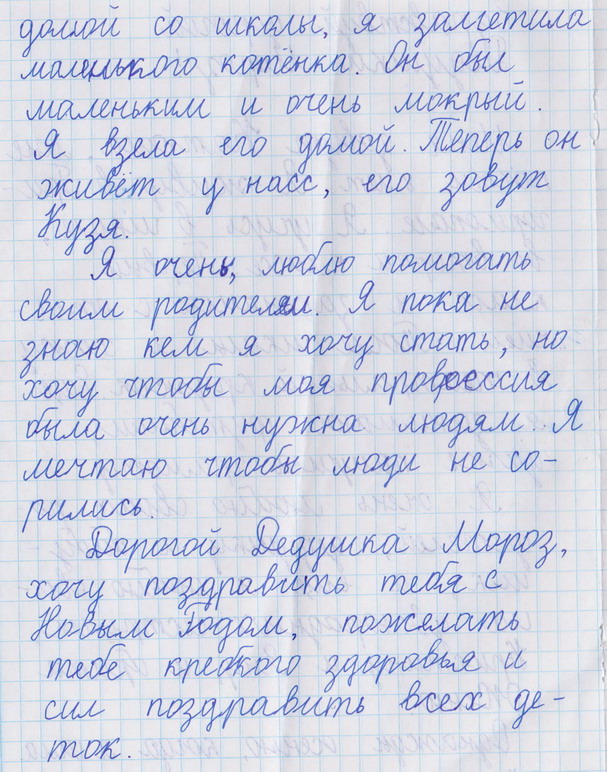 домой со школы, я заметила
маленького котёнка. Он был
маленьким и очень мокрый.
Я взела его домой. Теперь он
живёт у насс, его зовут
Кузя.
Я очень, люблю помогать
своим родителям. Я пока не
знаю кем я хочу стать, но
хочу чтобы моя профессия
была очень нужна людям. Я
мечтаю чтобы люди не со-
рились.
Дорогой Дедушка Мороз,
хочу поздравить тебя с
Новым Годом, пожелать
тебе крепкого здоровья и
сил поздравить всех де-
ток.